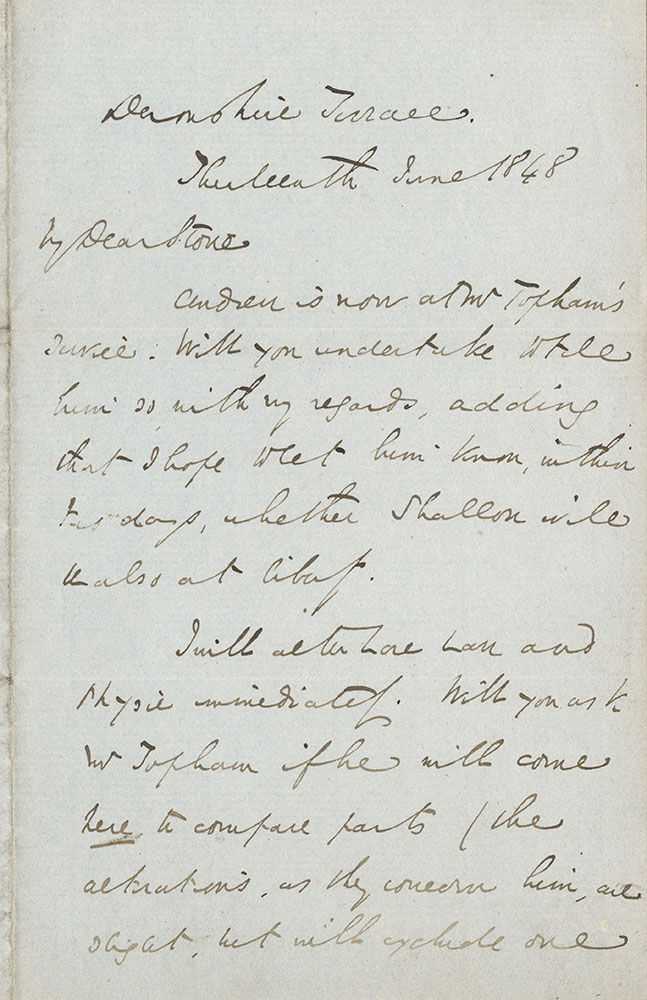 Devonshire Terrace.
Thirteenth June 1848
My Dear Stone
Andrew is now at Mr Topham's
service. Will you undertake to tell
him so, with my regards, adding
that I hope to let him know, within
two days, whether Shallow will
be also at liberty.
I will alter Love Law and
Physic immediately. Will you ask
Mr Topham if he will come
here, to compare parts (the
alterations, as they concern him, are
slight, but will exclude one